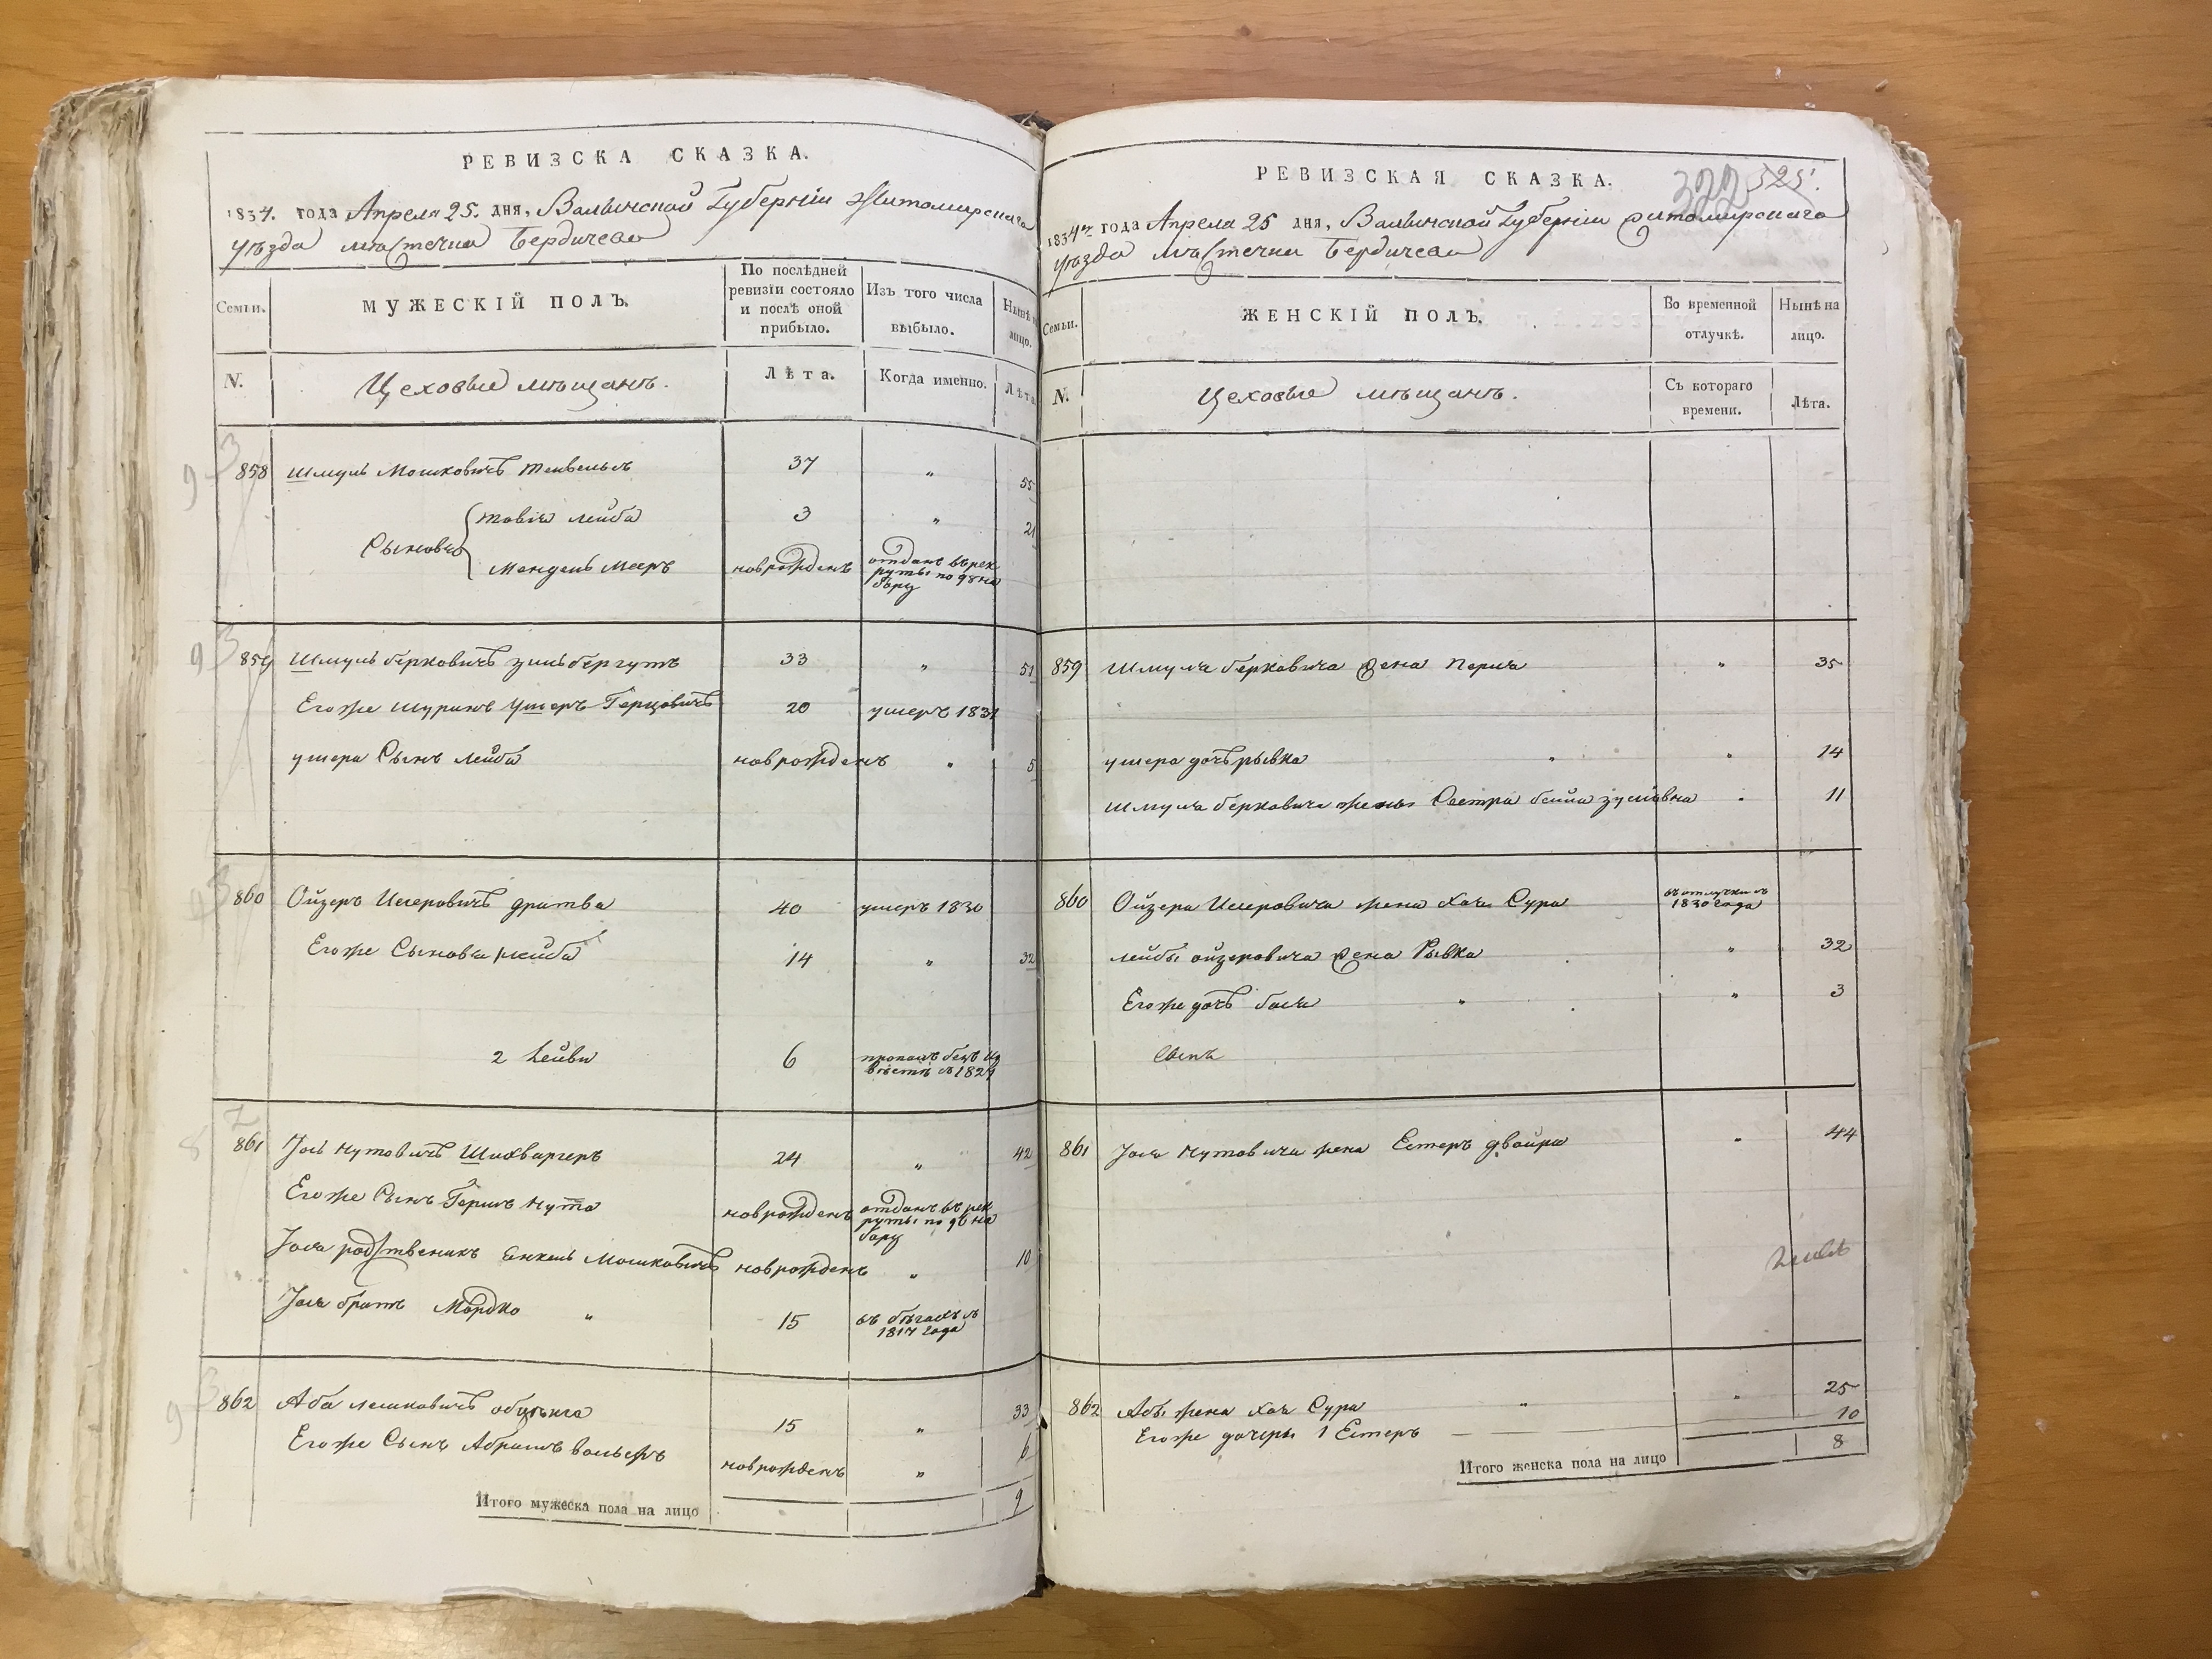 РЕВИЗСКА СКАЗКА.
1834. года Апреля 25. дня, Валынской Губерніи Житомирскаго
уѣзда мѣстечка Бердичева
Семьи.
МУЖЕСКІЙ ПОЛЪ.
По послѣдней ревизіи состояло и послѣ оной прибыло.
Изъ того числа выбыло.
Нынѣ на лицо.
N.
Цеховые мѣщанъ.
Лѣта.
Когда именно.
Лѣта
858 Шмуль Мошковичъ 37 " 55
Сыновья Товія Лейба 3 " 21
Мендель Мееръ новрожденъ отданъ въ рек
руты по 98 на
бору
859 Шмуль Берковичъ Зильбергутъ 33 " 51
Его же шуринъ Ушеръ Герцовичъ 20 умеръ 1831
Ушера Сынъ Лейба новрожденъ " 5
860 Ойзеръ Исеровичъ Дратва 40 умеръ 1830
Его же Сыновья 1 Лейба 14 " 32
2 Лейви 6 пропалъ безъ из
вѣстій съ 1829
861 Іось Нутовичъ Шихваргеръ 24 " 42
Его же Сынъ Гершъ Нута новрожденъ отданъ въ рек
руты по 96 на
бору
Іося родственикъ Енкель Мошковичъ новрожденъ " 10
Іося братъ Мордко " 15 въ бѣгахъ съ
1817 года
862 Аба 15 " 33
Его же Сынъ Абрамъ Вольфъ новрожденъ " 6
Итого мужеска пола на лицо 9
РЕВИЗСКАЯ СКАЗКА.
322 525.
1834 года Апреля 25 дня, Валынской Губерніи Житомирскаго
уѣзда мѣстечка Бердичева
Семьи.
ЖЕНСКІЙ ПОЛЪ.
Во временной отлучкѣ.
Нынѣ на лицо.
N.
Цеховые мѣщанъ.
Съ котораго времени.
Лѣта.
859 Шмуля Берковича жена Перля " 35
Ушера дочь Рывка " " 14
Шмуля Берковича жены Сестра Бейла " 11
860 Ойзера Исеровича жена Хая Сура въ отлучки съ
1830 года
Лейбы Ойзеровича жена Рывка " 32
Его же дочь Бася " " 3
861 Іося Нутовича жена Естеръ Двойра " 44
862 Абы жена Хая Сура " " 25
Его же дочеры 1 Естеръ 10
Итого женска пола на лицо 8